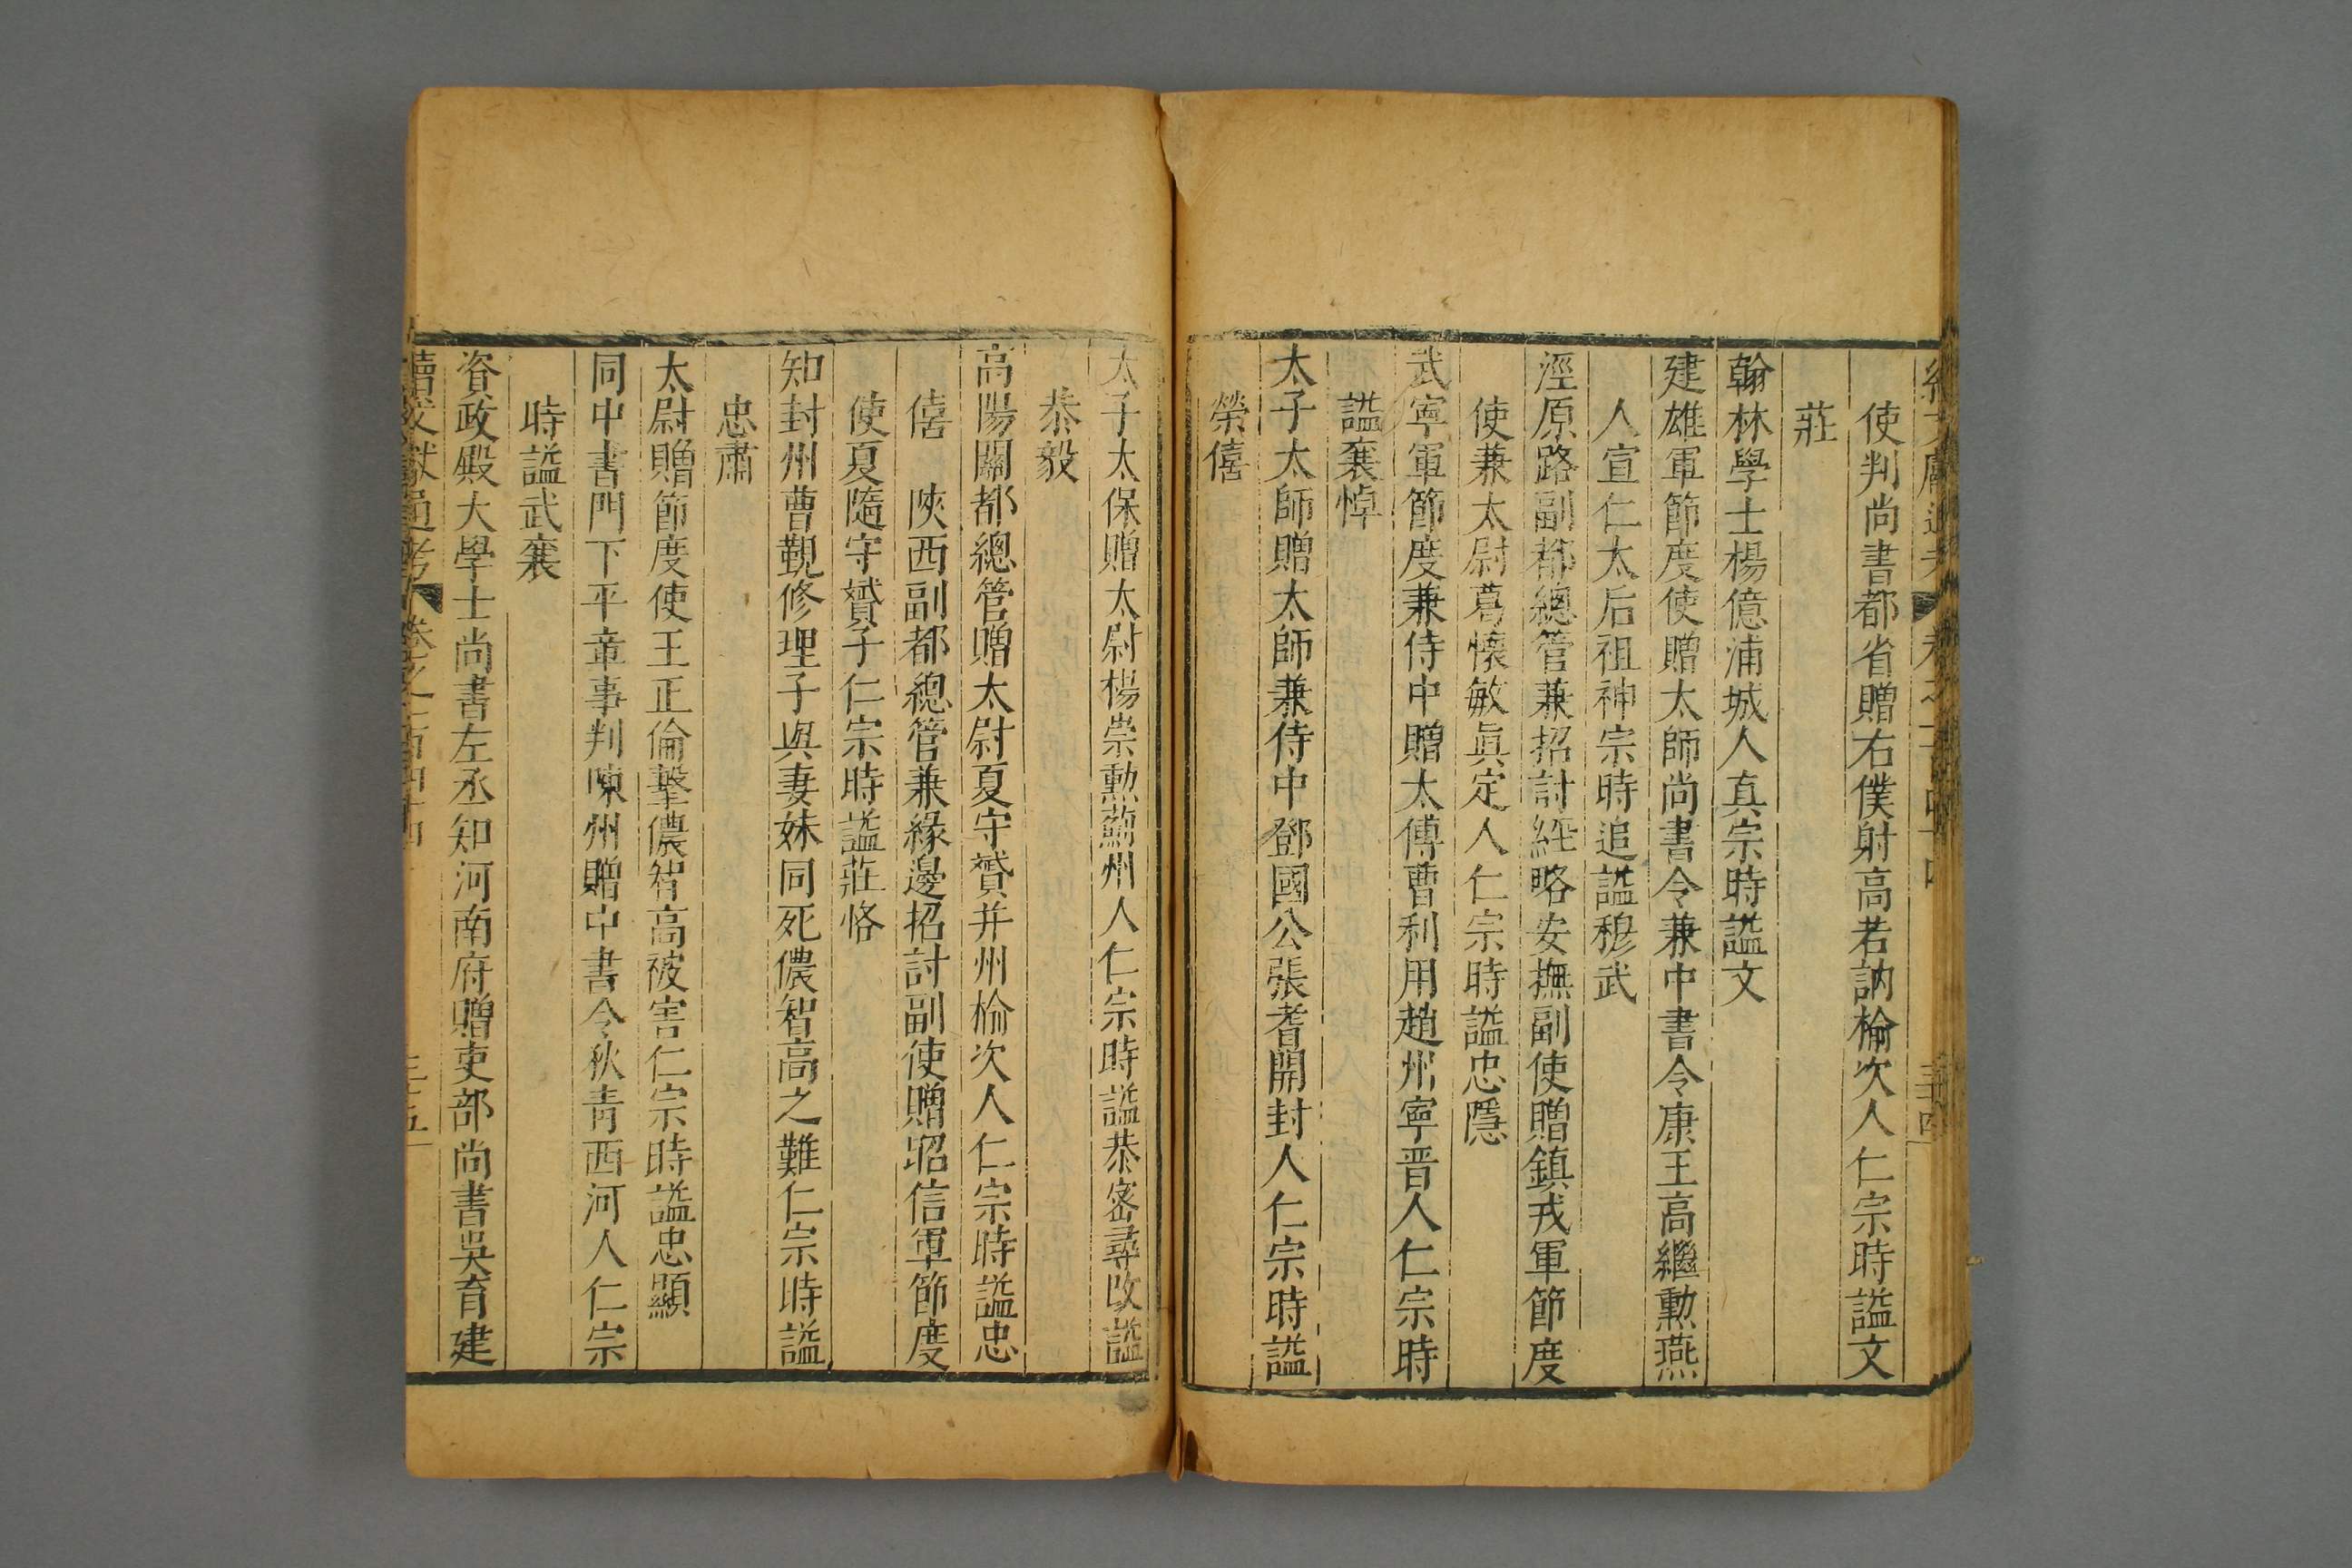 使判尚書都省贈右僕射高若訥榆次人仁宗時謚文
莊
翰林學士楊億浦城人真宗時謚文
建雄軍節度使贈太師尚書令兼中書令康王高繼勳燕
人宣仁太后祖神宗時追謚穆武
涇原路副都總管兼招討経略安撫副使贈鎮戎軍節度
使兼太尉葛懷敏眞定人仁宗時謚忠隱
武寧軍節度兼侍中贈太傅曹利用趙州寧晋人仁宗時
謚襄悼
太子太師贈太師兼侍中鄧國公張耆開封人仁宗時謚
榮僖
太子太保贈太尉楊崇勳薊州人仁宗時謚恭密尋改謚
恭毅
高陽關都總管贈太尉夏守贇并州榆次人仁宗時謚忠
僖 陜西副都總管兼緣邊招討副使贈昭信軍節度
使夏隨守贇子仁宗時謚莊恪
知封州曹覲修理子與妻妹同死儂智高之難仁宗時謚
忠肅
太尉贈節度使王正倫擊儂智高被害仁宗時謚忠顯
同中書門下平章事判陳州贈中書令狄青西河人仁宗
時謚武襄
資政殿大學士尚書左丞知河南府贈吏部尚書吳育建
續文獻通考 卷之一百四十四 三十五